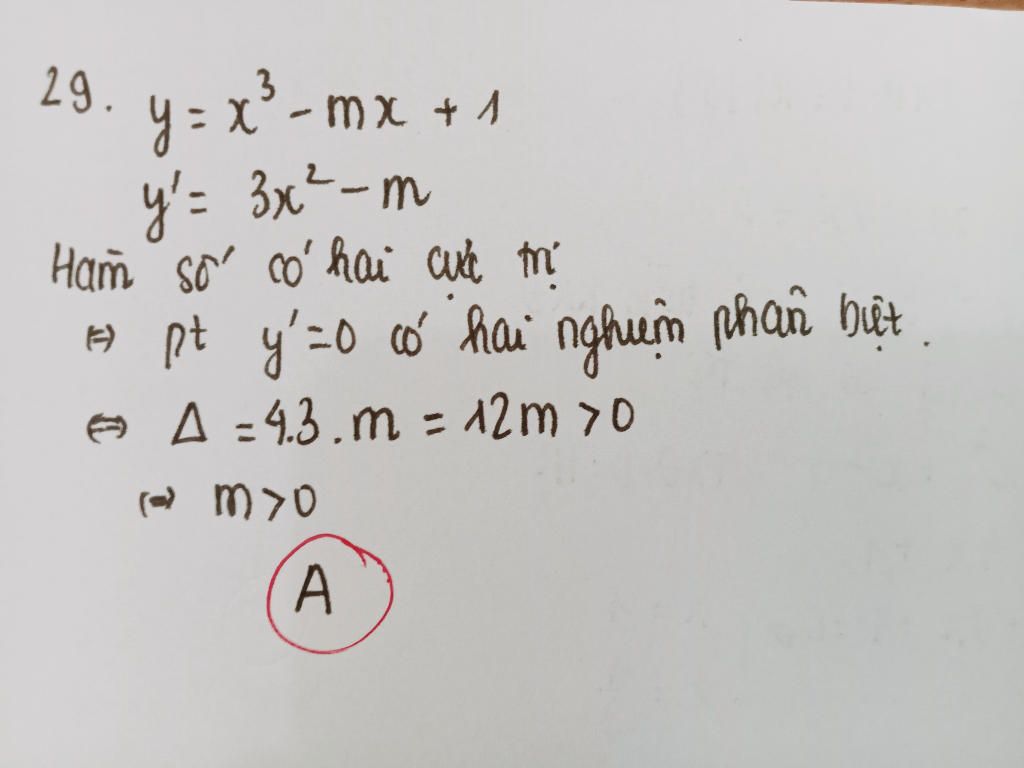 29. y = x³ - mx + 1
y' = 3x² - m
Hàm số có hai cực trị
⇔ pt y'=0 có hai nghiệm phân biệt.
⇔ Δ = 4.3.m = 12m > 0
⇔ m > 0
A